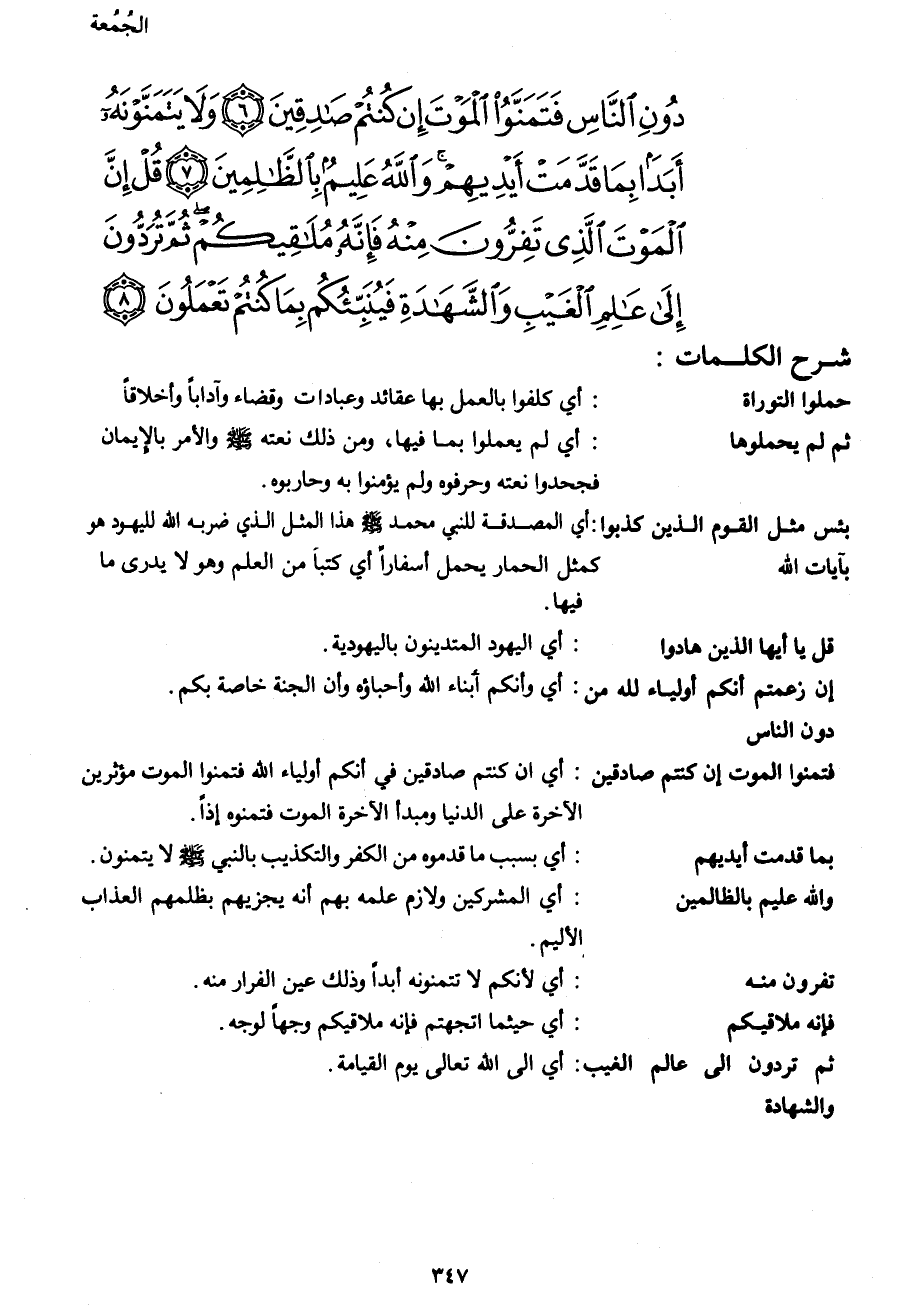 الجُمُعة
دُونِ ٱلنَّاسِ فَتَمَنَّوُا۟ ٱلْمَوْتَ إِن كُنتُمْ صَٰدِقِينَ ۝٦ وَلَا يَتَمَنَّوْنَهُۥٓ
أَبَدًۢا بِمَا قَدَّمَتْ أَيْدِيهِمْ ۚ وَٱللَّهُ عَلِيمٌۢ بِٱلظَّٰلِمِينَ ۝٧ قُلْ إِنَّ
ٱلْمَوْتَ ٱلَّذِى تَفِرُّونَ مِنْهُ فَإِنَّهُۥ مُلَٰقِيكُمْ ۖ ثُمَّ تُرَدُّونَ
إِلَىٰ عَٰلِمِ ٱلْغَيْبِ وَٱلشَّهَٰدَةِ فَيُنَبِّئُكُم بِمَا كُنتُمْ تَعْمَلُونَ ۝٨
شـرح الكلـمات :
حملوا التوراة : أي كلفوا بالعمل بها عقائد وعبادات وقضاء وآداباً وأخلاقاً
ثم لم يحملوها : أي لم يعملوا بما فيها، ومن ذلك نعته ﷺ والأمر بالإيمان
فجحدوا نعته وحرفوه ولم يؤمنوا به وحاربوه.
بئس مثل القوم الذين كذبوا :أي المصدقة للنبي محمد ﷺ هذا المثل الذي ضربه الله لليهود هو
بآيات الله كمثل الحمار يحمل أسفاراً أي كتباً من العلم وهو لا يدرى ما
فيها.
قل يا أيها الذين هادوا : أي اليهود المتدينون باليهودية.
إن زعمتم أنكم أولياء لله من : أي وأنكم أبناء الله وأحباؤه وأن الجنة خاصة بكم.
دون الناس
فتمنوا الموت إن كنتم صادقين : أي ان كنتم صادقين في أنكم أولياء الله فتمنوا الموت مؤثرين
الآخرة على الدنيا ومبدأ الآخرة الموت فتمنوه إذاً.
بما قدمت أيديهم : أي بسبب ما قدموه من الكفر والتكذيب بالنبي ﷺ لا يتمنون.
والله عليم بالظالمين : أي المشركين ولازم علمه بهم أنه يجزيهم بظلمهم العذاب
الأليم.
تفرون منـه : أي لأنكم لا تتمنونه أبداً وذلك عين الفرار منه.
فإنه ملاقيـكم : أي حيثما اتجهتم فإنه ملاقيكم وجهاً لوجه.
ثم تردون الى عالم الغيب : أي الى الله تعالى يوم القيامة.
والشهادة
٣٤٧